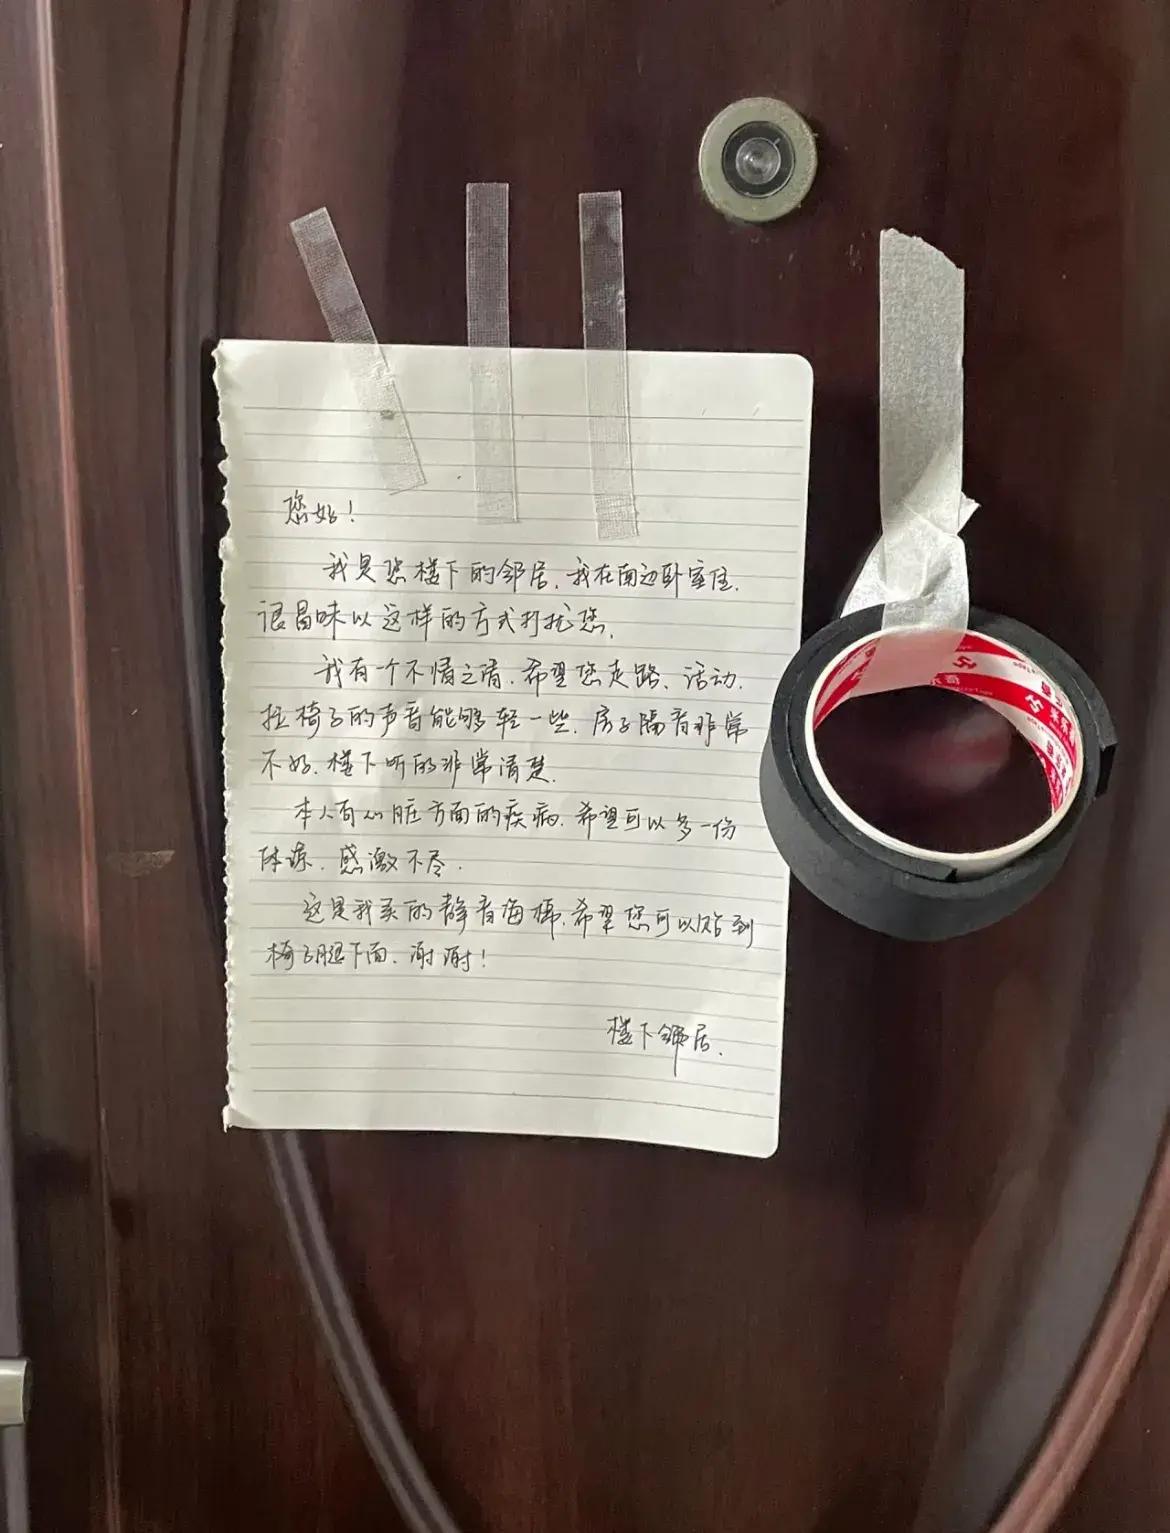 您好！
我是您楼下的邻居，我在南边卧室住，
很冒昧以这样的方式打扰您，
我有一个不情之请，希望您走路、活动，
拉椅子的声音能够轻一些，房子隔音非常
不好，楼下听的非常清楚。
本人有心脏方面的疾病，希望可以多一份
体谅，感激不尽。
这是我买的静音海棉，希望您可以贴到
椅子腿下面，谢谢！
楼下邻居。